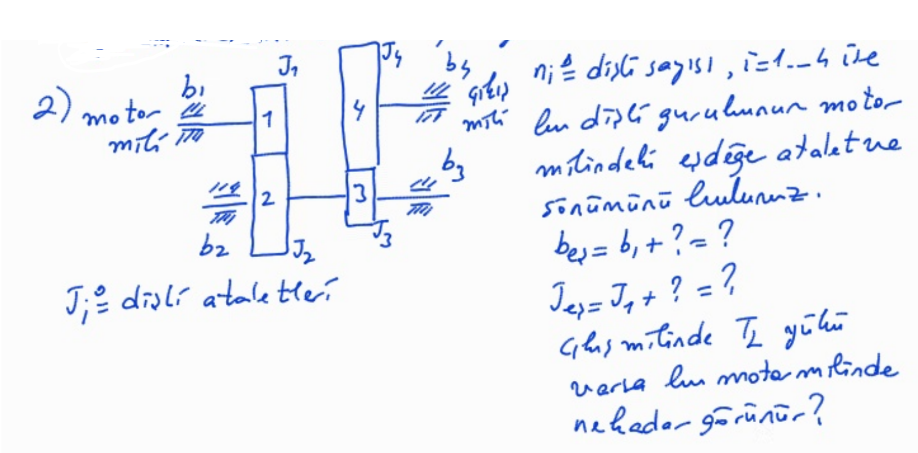 2) motor
mili
b1
J1
1
2
b2
J2
J4
4
3
J3
b4
çıkış
mili
b3
Ji ≜ dişli ataletleri
ni ≜ dişli sayısı, i=1...4 ise
bu dişli gurubunun motor
milindeki eşdeğe atalet ve
sönümünü bulunuz.
beş = b1 + ? = ?
Jeş = J1 + ? = ?
Çıkış milinde TL yükü
varsa bu motor milinde
ne kadar görünür?